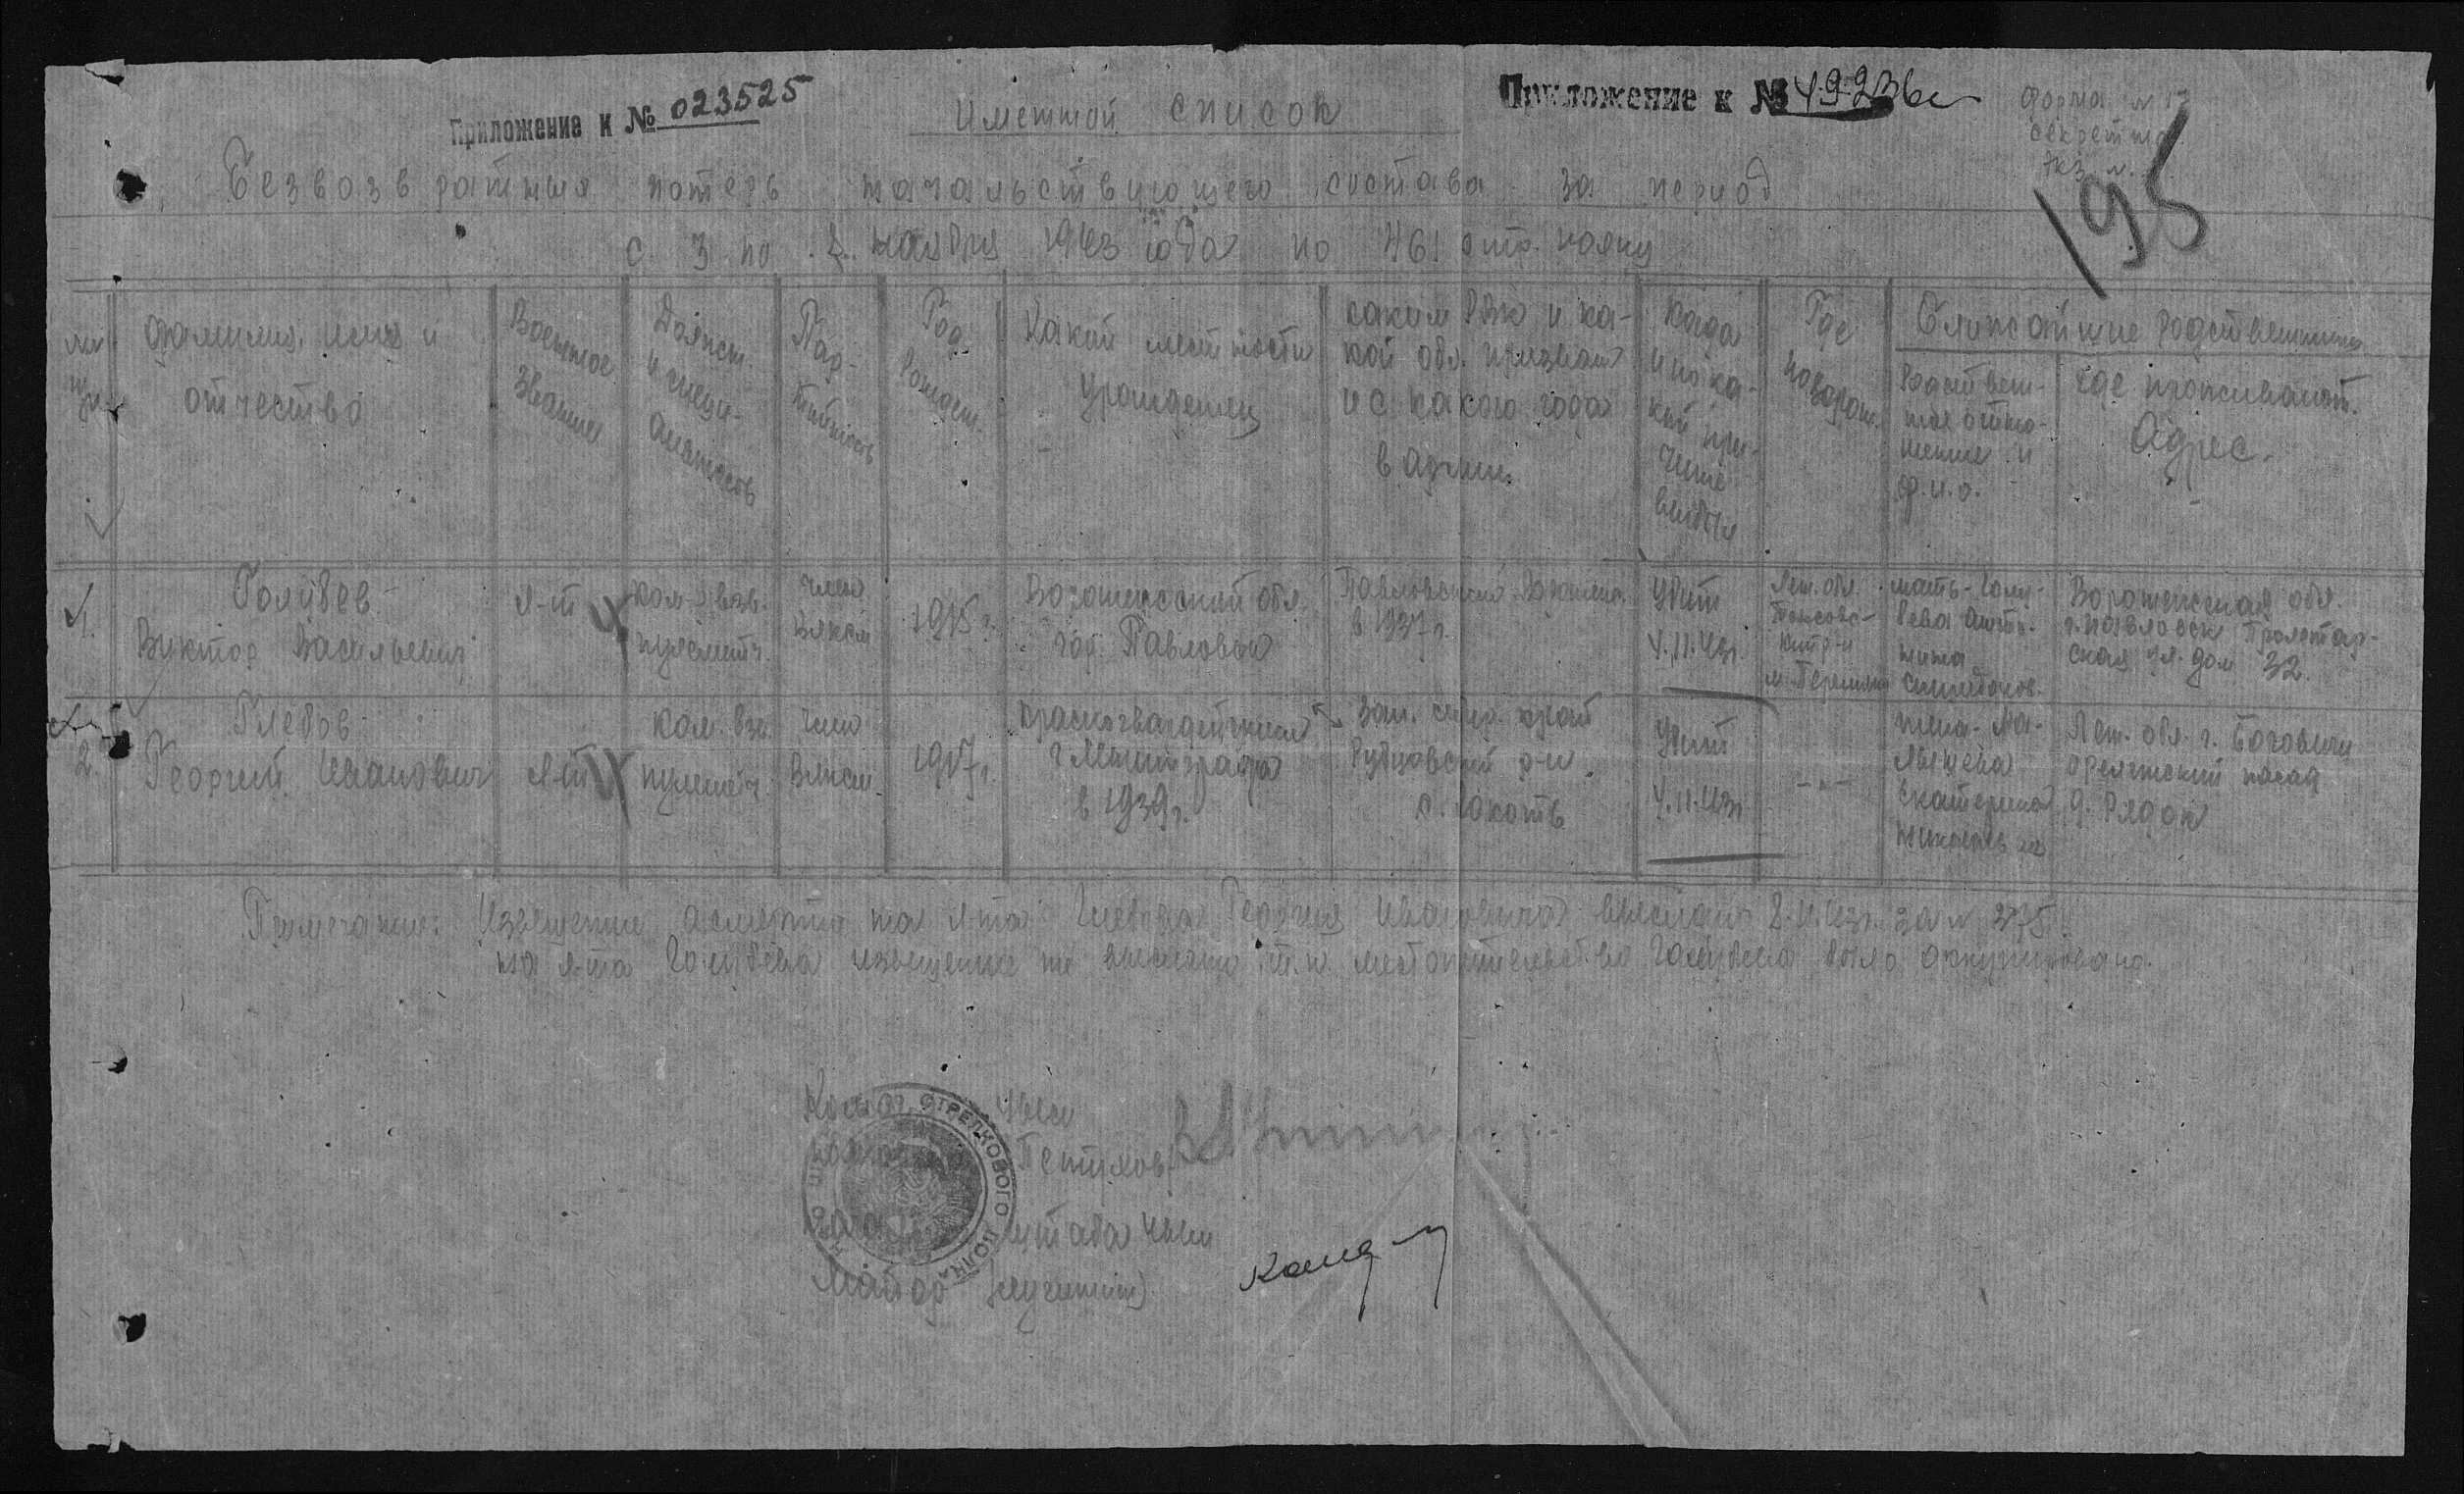 Приложение к № 023525
Именной список
Приложение к № 49236с
форма № 12
секретно
экз. №
195
Безвозвратных потерь начальствующего состава за период
с 3 по 8 ноября 1943 года по 461 стр. полку
№№ п/п
фамилия, имя и отчество
Военное звание
Должн. и специальность
Партийность
Год рожден.
Какой местности урожденец
каким РВК и какой обл. призван и с какого года в армии.
Когда и по какой причине выбыл
Где похорон.
Ближайшие родственники
Родственное отношение и ф.и.о.
где проживают. Адрес.
1. Голубев Виктор Васильевич
л-т
ком-р взв. пулеметч.
член ВЛКСМ
1915 г.
Воронежский обл. гор. Павловск
Павловским Воронеж. в 1937 г.
Убит 4.11.43г.
Лен. обл.
мать - Голубева
Воронежская обл. г. Павловск Пролетарская ул. дом 32.
2. Глебов Георгий Иванович
л-т
ком. взв. пулеметч.
член ВЛКСМ
1917 г.
Красногвардейским г. Ленинграда в 1939 г.
Зап. сибир. край Рубцовский р-н с. Локоть
Убит 4.11.43г
-"-
жена - Малышева Екатерина
Лен. обл. г. Боровичи д. Рядок
Примечание: Извещение о смерти на л-та Глебова Георгия Ивановича выслано 8.11.43г. за № 375.
на л-та Голубева извещение не выслано т.к. местожительство Голубева было оккупировано.
Петухов
штаба
Майор
СТРЕЛКОВОГО ПОЛКА